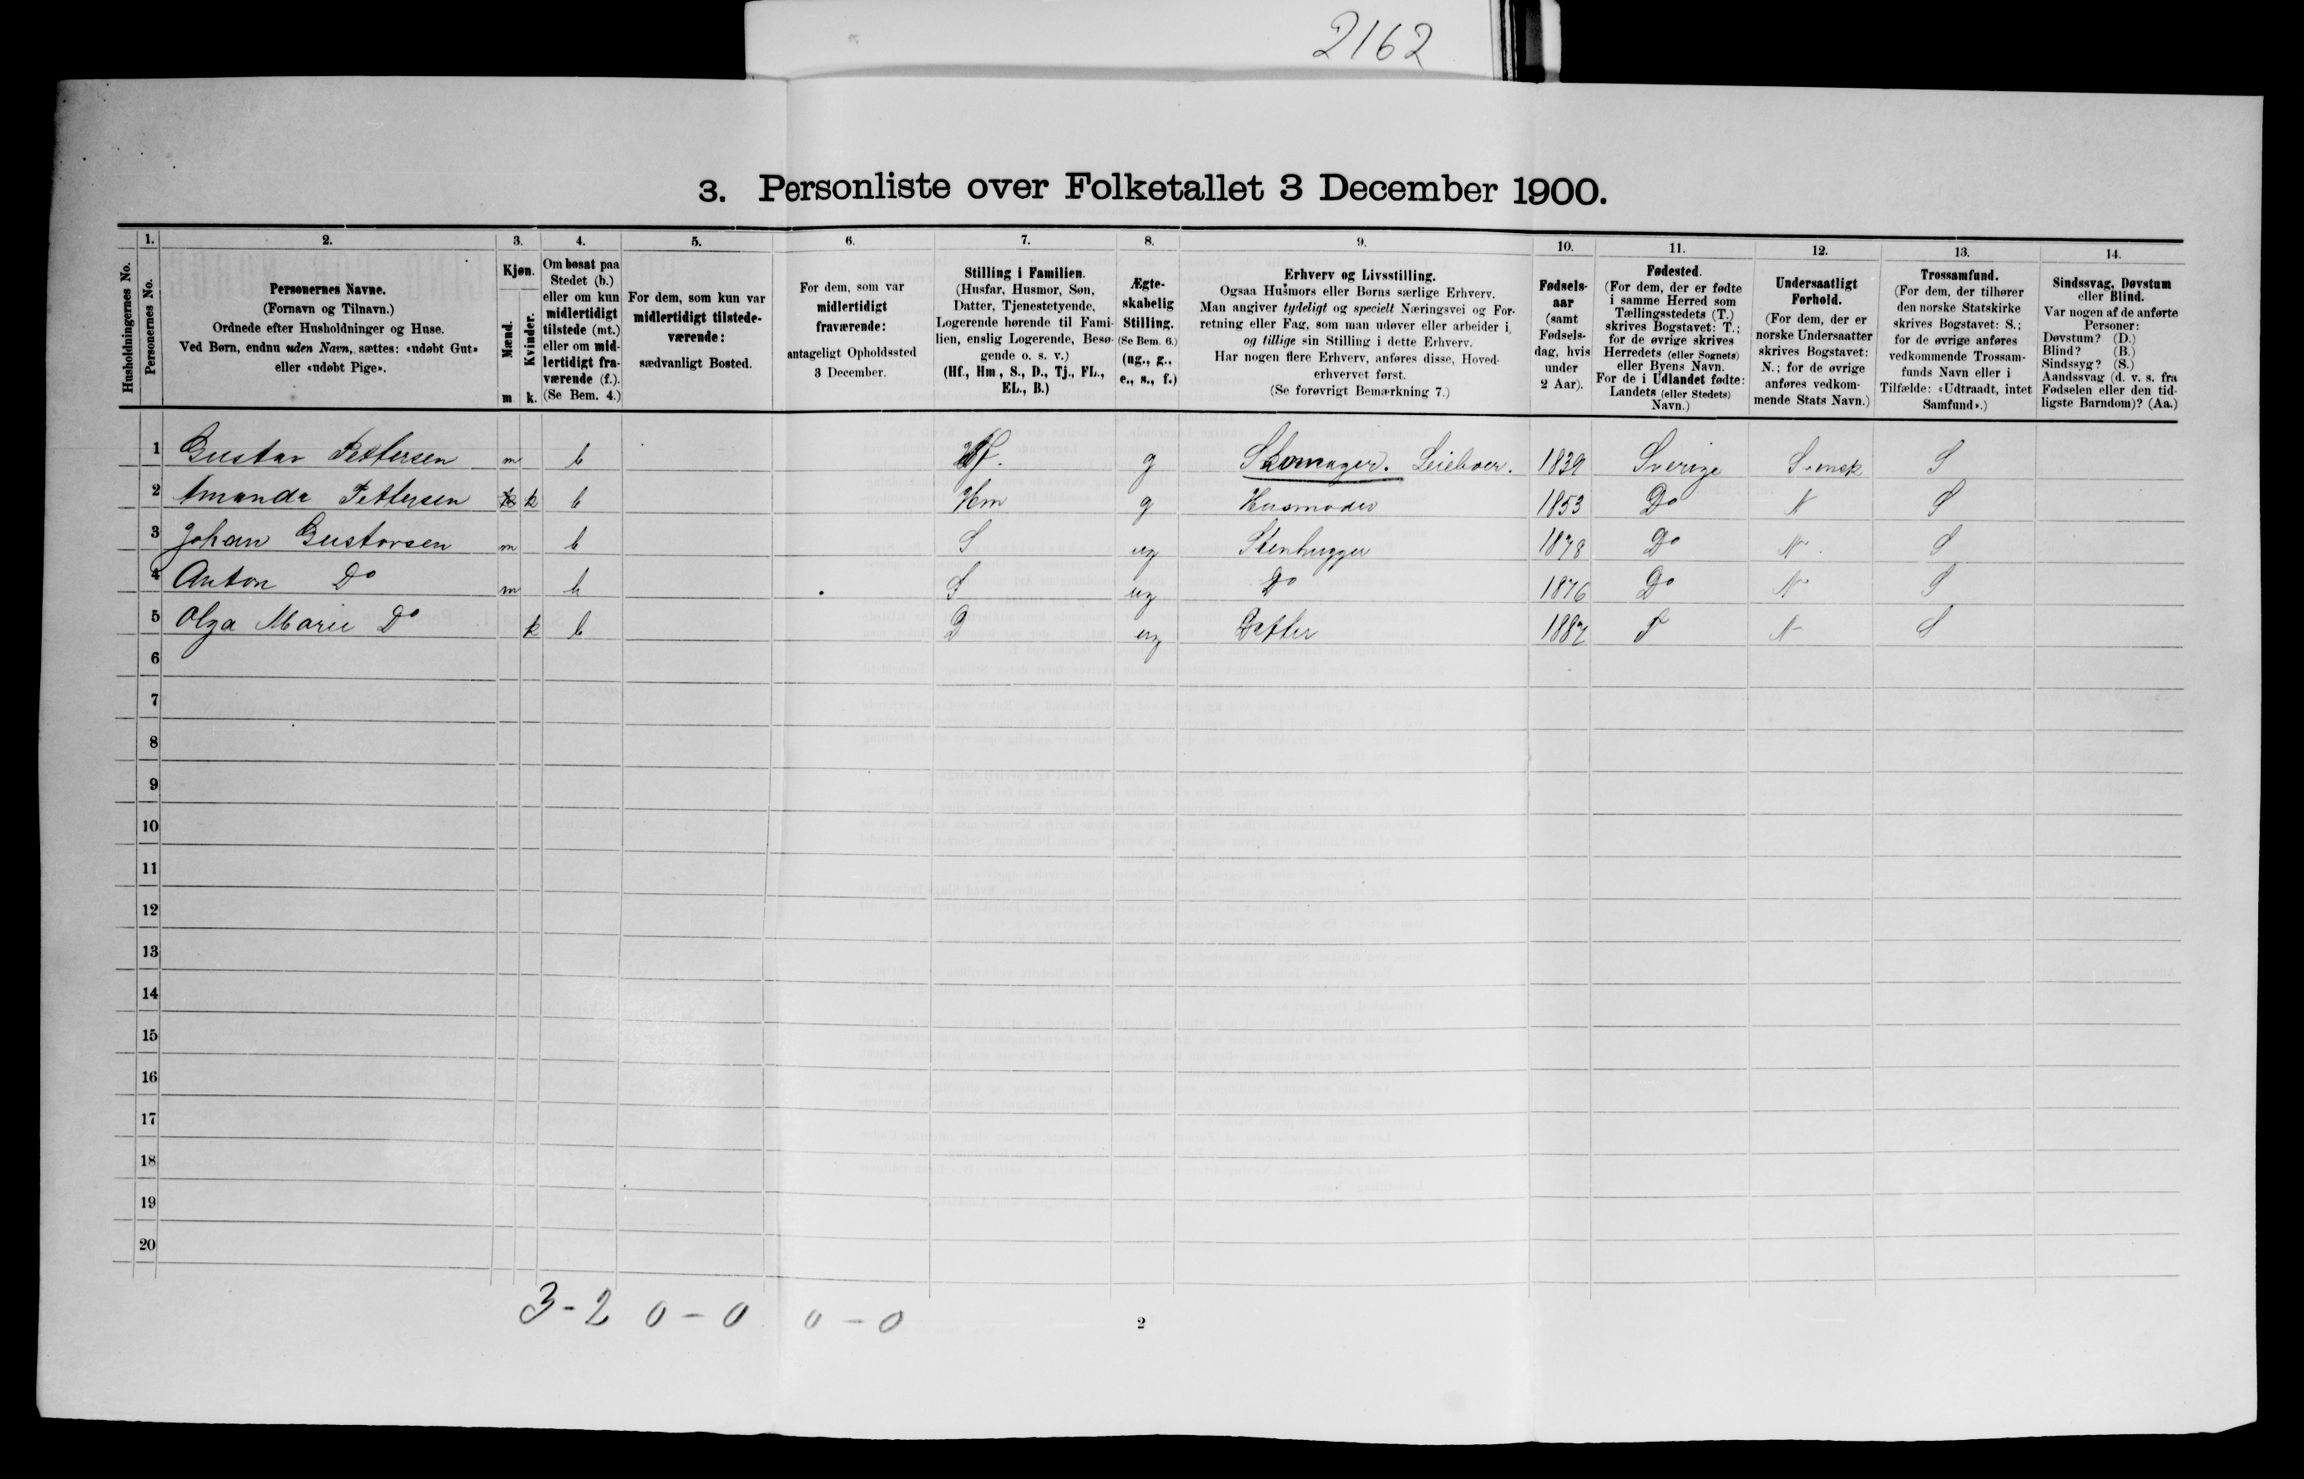 2162
3. Personliste over Folketallet 3 December 1900.
1. 2. 3. 4. 5. 6. 7. 8. 9. 10. 11. 12. 13. 14.
Husholdningernes No.
Personernes No.
Personernes Navne.
(Fornavn og Tilnavn.)
Ordnede efter Husholdninger og Huse.
Ved Børn, endnu uden Navn, sættes: «udøbt Gut»
eller «udøbt Pige».
Kjøn.
Mænd.
Kvinder.
m k.
Om bosat paa
Stedet (b.)
eller om kun
midlertidigt
tilstede (mt.)
eller om mid-
lertidigt fra-
værende (f.).
(Se Bem. 4.)
For dem, som kun var
midlertidigt tilstede-
værende:
sædvanligt Bosted.
For dem, som var
midlertidigt
fraværende:
antageligt Opholdssted
3 December.
Stilling i Familien.
(Husfar, Husmor, Søn,
Datter, Tjenestetyende,
Logerende hørende til Fami-
lien, enslig Logerende, Besø-
gende o. s. v.)
(Hf., Hm., S., D., Tj., FL.,
EL., B.)
Ægte-
skabelig
Stilling.
(Se Bem. 6.)
(ug., g.,
e., s., f.)
Erhverv og Livsstilling.
Ogsaa Husmors eller Børns særlige Erhverv.
Man angiver tydeligt og specielt Næringsvei og For-
retning eller Fag, som man udøver eller arbeider i,
og tillige sin Stilling i dette Erhverv.
Har nogen flere Erhverv, anføres disse, Hoved-
erhvervet først.
(Se forøvrigt Bemærkning 7.)
Fødsels-
aar
(samt
Fødsels-
dag, hvis
under
2 Aar).
Fødested.
(For dem, der er fødte
i samme Herred som
Tællingsstedets (T.)
skrives Bogstavet: T.;
for de øvrige skrives
Herredets (eller Sognets)
eller Byens Navn.
For de i Udlandet fødte:
Landets (eller Stedets)
Navn.)
Undersaatligt
Forhold.
(For dem, der er
norske Undersaatter
skrives Bogstavet:
N.; for de øvrige
anføres vedkom-
mende Stats Navn.)
Trossamfund.
(For dem, der tilhører
den norske Statskirke
skrives Bogstavet: S.;
for de øvrige anføres
vedkommende Trossam-
funds Navn eller i
Tilfælde: «Udtraadt, intet
Samfund».)
Sindssvag, Døvstum
eller Blind.
Var nogen af de anførte
Personer:
Døvstum? (D.)
Blind? (B.)
Sindssyg? (S.)
Aandssvag (d. v. s. fra
Fødselen eller den tid-
ligste Barndom)? (Aa.)
1 Gustav Pettersen m b Hf. g Skomager. Leieboer. 1839 Sverige Svensk S
2 Amanda Pettersen k b Hm g Husmoder 1853 Do N S
3 Johan Gustavsen m b S ug Stenhugger 1878 Do N. S
4 Anton Do m b S ug Do 1876 Do N S
5 Olga Marie Do k b D ug Datter 1887 T N S
6
7
8
9
10
11
12
13
14
15
16
17
18
19
20
3-2 0-0 0-0
2